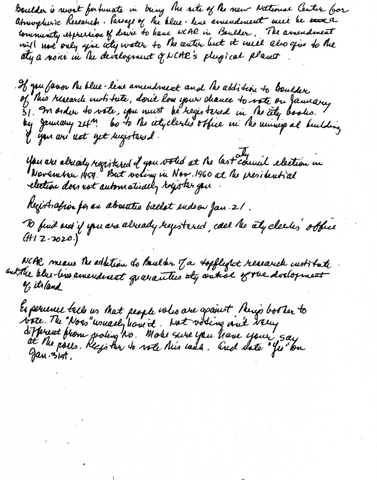 Boulder is most fortunate in being the site of the new National Center for
Atmospheric Research. Passage of the blue-line amendment will be a
community expression of desire to have NCAR in Boulder. The amendment
will not only give city water to the center but it will also give to the
city a voice in the development of NCAR's physical planet.
If you favor the blue-line amendment and the addition to Boulder
of this research institute, don't lose your chance to vote on January
31. In order to vote, you must be registered in the city books
by January 24th. Go to the city clerk's office in the municipal building
if you are not yet registered.
You are already registered if you voted at the last council election in
November 1959. But voting in Nov. 1960 at the presidential
election does not automatically register you.
Registration for an absentee ballot ends on Jan. 21.
To find out if you are already registered, call the city clerks' office
(HI 2-2020.)
NCAR means the addition to Boulder of a topflight research institute
and the blue-line amendment guarantees city control of the development
of its land
Experience tells us that people who are against things bother to
vote. The "Noes" usually have it. Not voting isn't very
different from voting No. Make sure you have your say
at the polls. Register to vote this week. And vote "Yes" on
Jan. 31st.